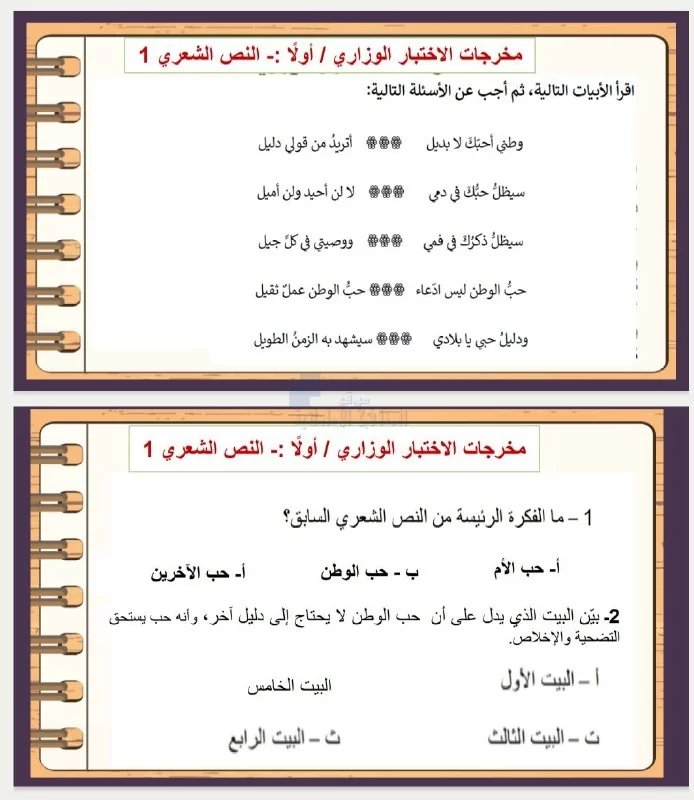 مخرجات الاختبار الوزاري / أولًا :- النص الشعري 1
اقرأ الأبيات التالية، ثم أجب عن الأسئلة التالية:
وطني أحبّكَ لا بديل ❁❁❁ أتريدُ من قولي دليل
سيظلُّ حبُّكَ في دمي ❁❁❁ لا لن أحيد ولن أميل
سيظلُّ ذكرُكَ في فمي ❁❁❁ ووصيتي في كلِّ جيل
حبُّ الوطن ليس ادّعاء ❁❁❁ حبُّ الوطن عملٌ ثقيل
ودليلُ حبي يا بلادي ❁❁❁ سيشهد به الزمنُ الطويل
مخرجات الاختبار الوزاري / أولًا :- النص الشعري 1
1 – ما الفكرة الرئيسة من النص الشعري السابق؟
أ- حب الأم ب - حب الوطن أ- حب الآخرين
2- بيّن البيت الذي يدل على أن حب الوطن لا يحتاج إلى دليل آخر، وأنه حب يستحق
التضحية والإخلاص.
أ – البيت الأول البيت الخامس
ت – البيت الثالث ث – البيت الرابع